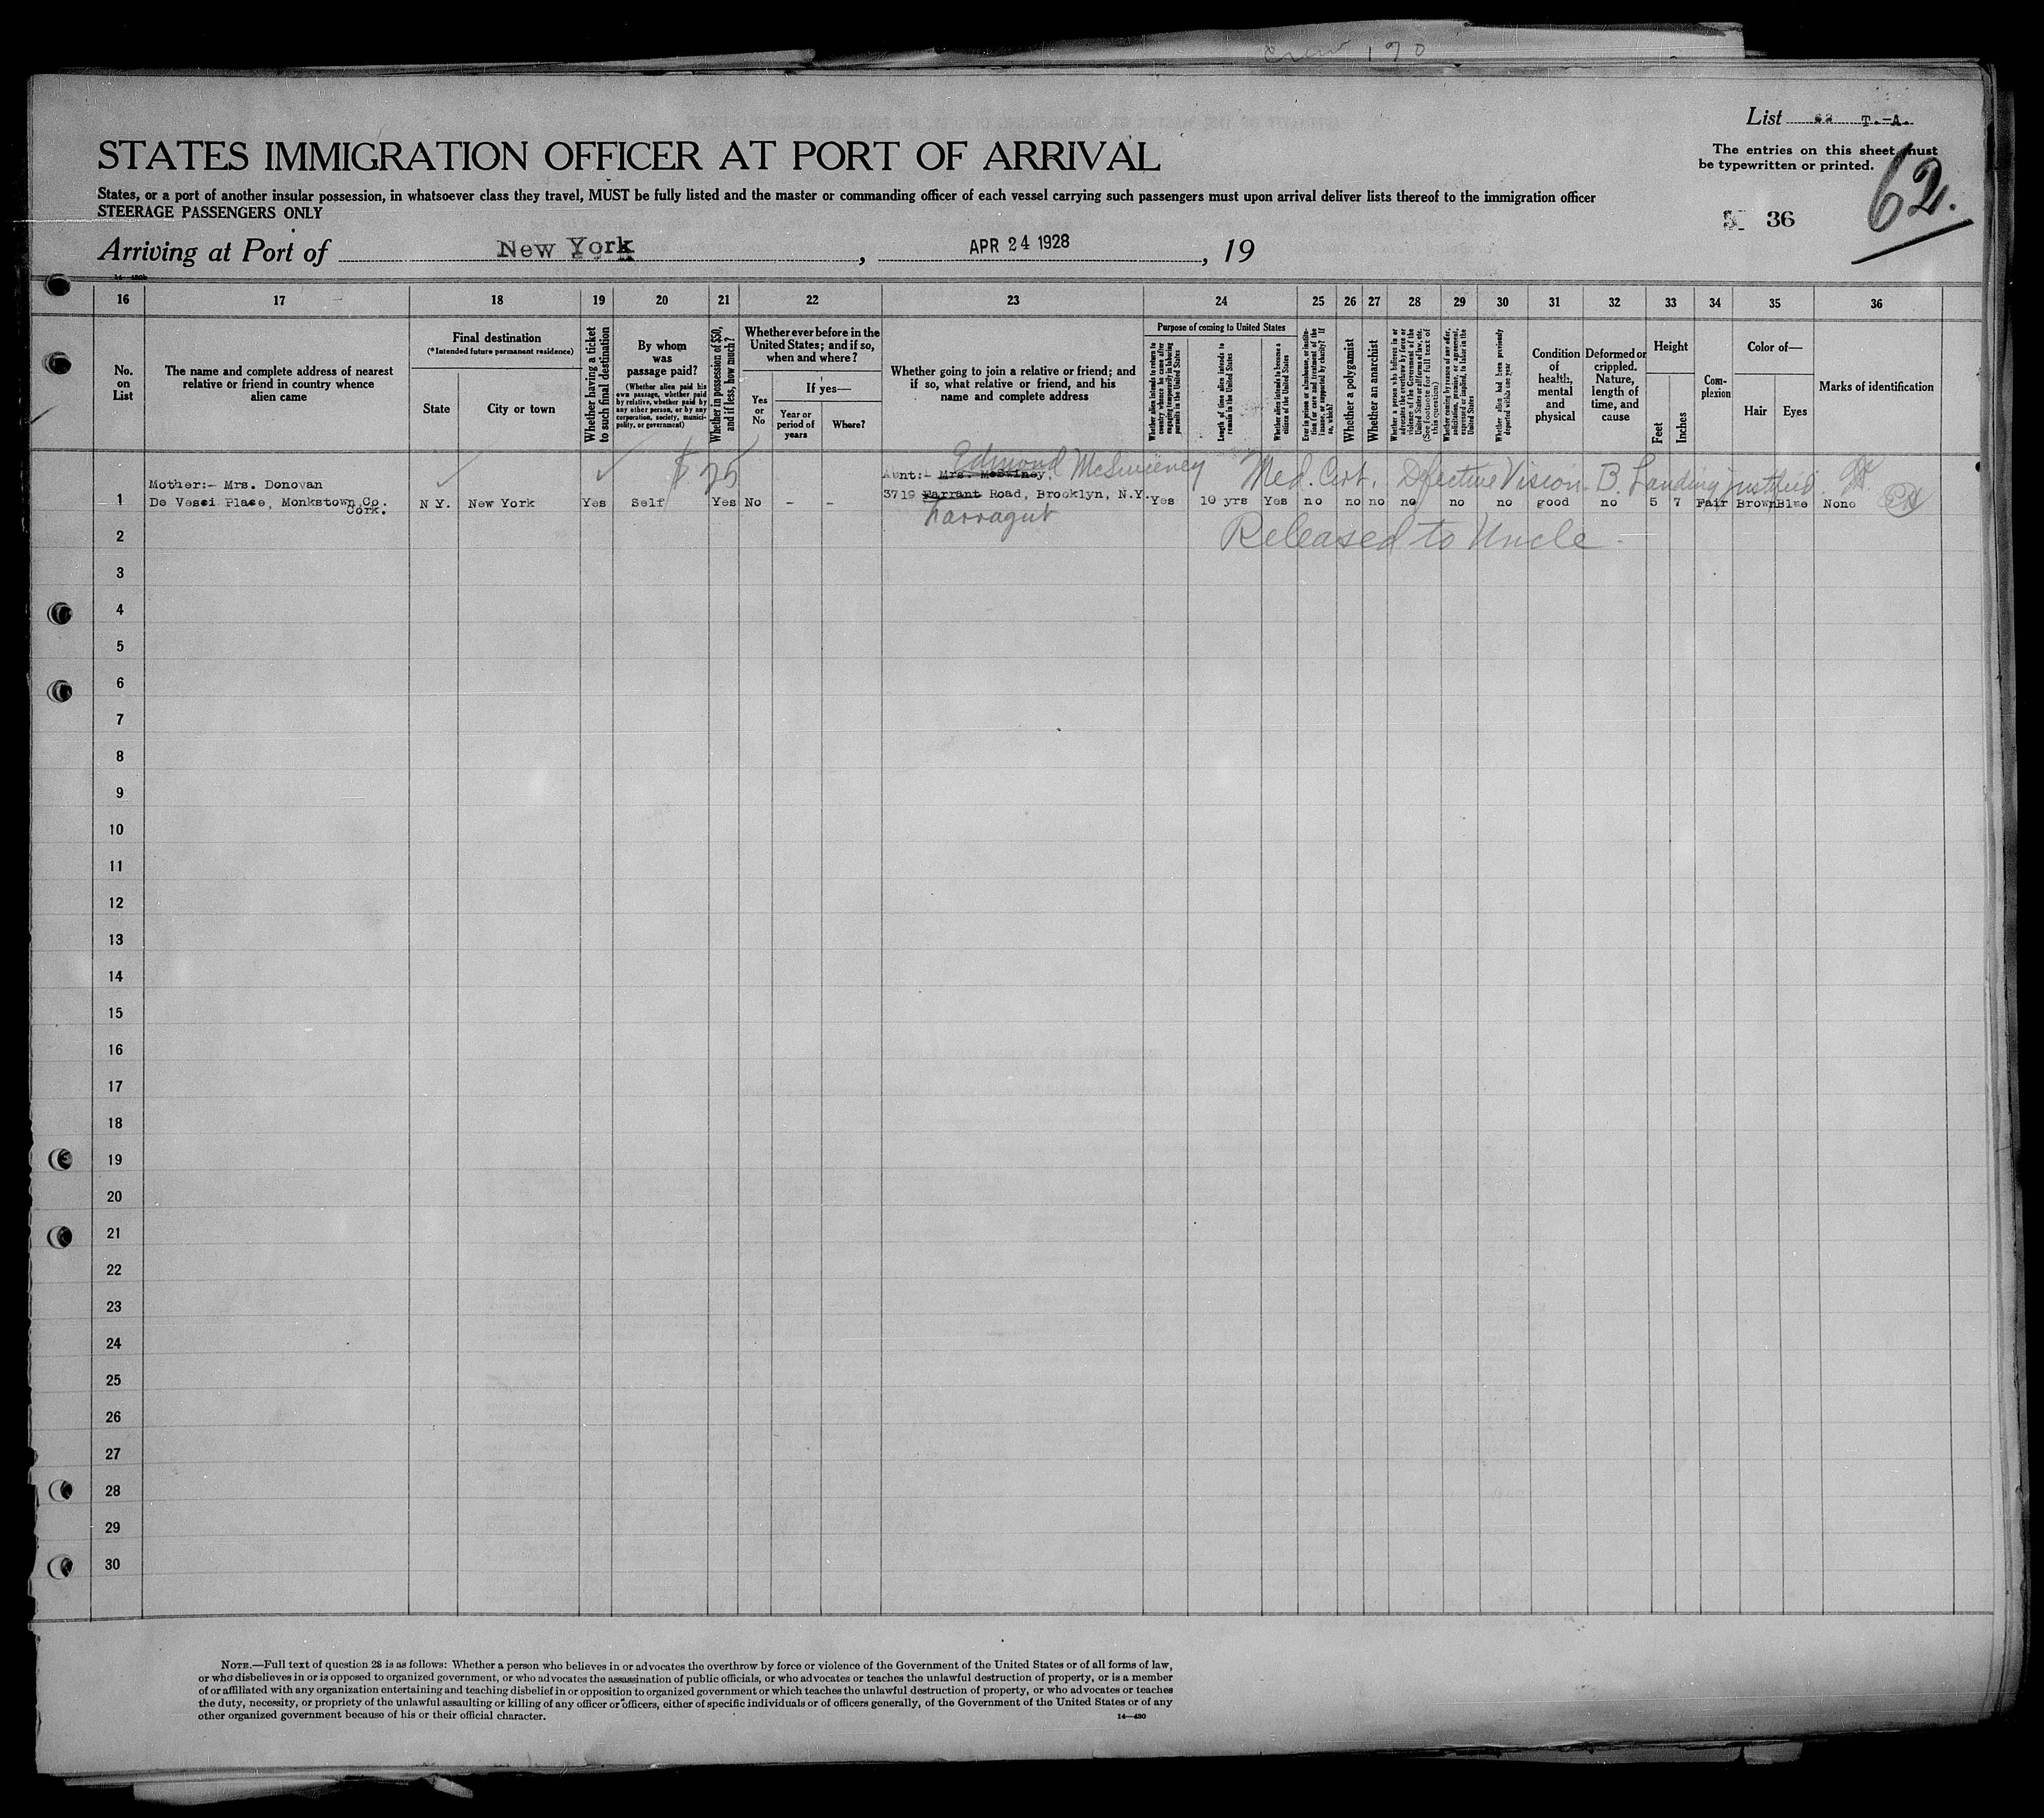 Crew 190
List 62 T.-A.
STATES IMMIGRATION OFFICER AT PORT OF ARRIVAL
The entries on this sheet must
be typewritten or printed.
62.
States, or a port of another insular possession, in whatsoever class they travel, MUST be fully listed and the master or commanding officer of each vessel carrying such passengers must upon arrival deliver lists thereof to the immigration officer
STEERAGE PASSENGERS ONLY
36
Arriving at Port of New York, APR 24 1928, 19
16 17 18 19 20 21 22 23 24 25 26 27 28 29 30 31 32 33 34 35 36
No.
on
List
The name and complete address of nearest
relative or friend in country whence
alien came
Final destination
(*Intended future permanent residence)
State
City or town
Whether having a ticket
to such final destination
By whom
was
passage paid?
(Whether alien paid his
own passage, whether paid
by relative, whether paid by
any other person, or by any
corporation, society, munici-
pality, or government)
Whether in possession of $50,
and if less, how much?
Whether ever before in the
United States; and if so,
when and where?
Yes
or
No
If yes—
Year or
period of
years
Where?
Whether going to join a relative or friend; and
if so, what relative or friend, and his
name and complete address
Purpose of coming to United States
Whether alien intends to return to
country whence he came after
engaging temporarily in laboring
pursuits in the United States
Length of time alien intends to
remain in the United States
Whether alien intends to become a
citizen of the United States
Ever in prison or almshouse, or institu-
tion for care and treatment of the
insane, or supported by charity? If
so, which?
Whether a polygamist
Whether an anarchist
Whether a person who believes in or
advocates the overthrow by force or
violence of the Government of the
United States or all forms of law, etc.
(See footnote for full text of
this question)
Whether coming by reason of any offer,
solicitation, promise, or agreement,
expressed or implied, to labor in the
United States
Whether alien had been previously
deported within one year
Condition
of
health,
mental
and
physical
Deformed or
crippled.
Nature,
length of
time, and
cause
Height
Feet
Inches
Com-
plexion
Color of—
Hair
Eyes
Marks of identification
$ 25
Edmond McSweeney
Med. Cert. Defective Vision. B. Landing justified.
Mother:- Mrs. Donovan
Aunt:- Mrs. McSwiney.
1 De Vesci Place, Monkstown Co. Cork. N Y. New York Yes Self Yes No - - 3719 Farrant Road, Brooklyn, N.Y. Yes 10 yrs Yes no no no no no no good no 5 7 Fair Brown Blue None
Farragut
Released to Uncle.
2
3
4
5
6
7
8
9
10
11
12
13
14
15
16
17
18
19
20
21
22
23
24
25
26
27
28
29
30
NOTE.—Full text of question 28 is as follows: Whether a person who believes in or advocates the overthrow by force or violence of the Government of the United States or of all forms of law,
or who disbelieves in or is opposed to organized government, or who advocates the assassination of public officials, or who advocates or teaches the unlawful destruction of property, or is a member
of or affiliated with any organization entertaining and teaching disbelief in or opposition to organized government or which teaches the unlawful destruction of property, or who advocates or teaches
the duty, necessity, or propriety of the unlawful assaulting or killing of any officer or officers, either of specific individuals or of officers generally, of the Government of the United States or of any
other organized government because of his or their official character.
14—430